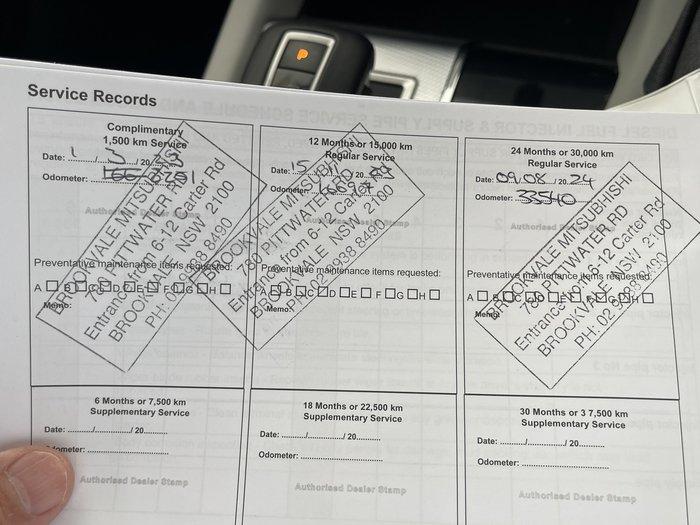 P
Service Records
Complimentary
1,500 km Service
Date: 1 / 3 / 20 23
Odometer: 3751
BROOKVALE MITSUBISHI
780 PITTWATER RD
Entrance from 6-12 Carter Rd
BROOKVALE NSW 2100
PH: 02 9938 8490
Preventative maintenance items requested:
A B C D E F G H
Memo:
12 Months or 15,000 km
Regular Service
Date: 15 / / 20
Odometer:
BROOKVALE MITSUBISHI
780 PITTWATER RD
Entrance from 6-12 Carter Rd
BROOKVALE NSW 2100
PH: 02 9938 8490
Preventative maintenance items requested:
A B C D E F G H
Memo:
24 Months or 30,000 km
Regular Service
Date: 09/08 / 20 24
Odometer: 33540
Authorised
BROOKVALE MITSUBISHI
780 PITTWATER RD
Entrance from 6-12 Carter Rd
BROOKVALE NSW 2100
PH: 02 9938 8490
Preventative maintenance items requested:
A B C D E F G H
Memo:
6 Months or 7,500 km
Supplementary Service
Date: ........./........./ 20.........
Odometer:
Authorised Dealer Stamp
18 Months or 22,500 km
Supplementary Service
Date: ........./........./ 20.........
Odometer: ..............................
Authorised Dealer Stamp
30 Months or 3 7,500 km
Supplementary Service
Date: ........./........./ 20.........
Odometer: ..............................
Authorised Dealer Stamp